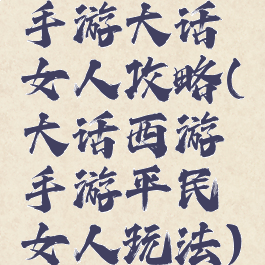 手游大话
女人攻略(
大话西游
手游平民
女人玩法)